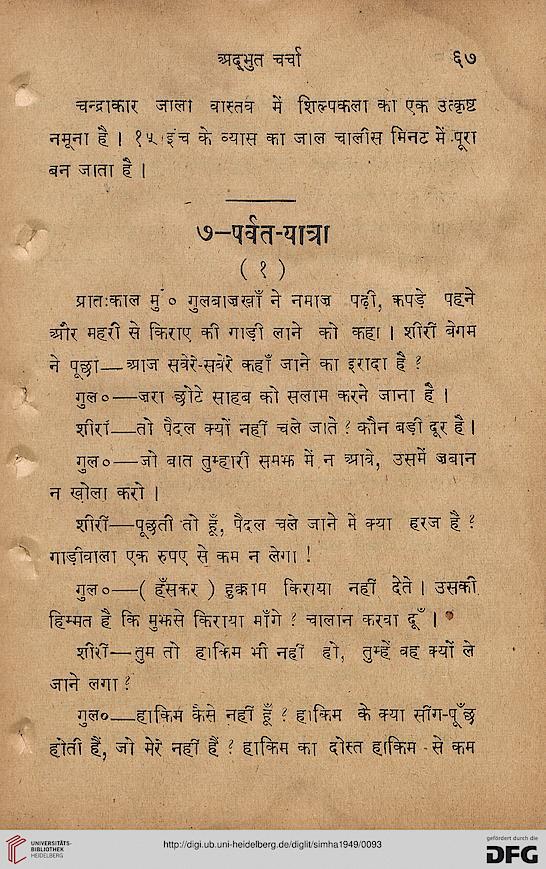 अद्भुत चर्चा ६७
चन्द्राकार जाला वास्तव में शिल्पकला का एक उत्कृष्ट
नमूना है । १५ इंच के व्यास का जाल चालीस मिनट में पूरा
बन जाता है ।
७—पर्वत-यात्रा
( १ )
प्रातःकाल मुं० गुलबाजखाँ ने नमाज पढ़ी, कपड़े पहने
और महरी से किराए की गाड़ी लाने को कहा । शीरीं बेगम
ने पूछा—आज सवेरे-सवेरे कहाँ जाने का इरादा है ?
गुल०—जरा छोटे साहब को सलाम करने जाना है ।
शीरीं—तो पैदल क्यों नहीं चले जाते ? कौन बड़ी दूर है ।
गुल०—जो बात तुम्हारी समझ में न आवे, उसमें जबान
न खोला करो ।
शीरीं—पूछती तो हूँ, पैदल चले जाने में क्या हरज है ?
गाड़ीवाला एक रुपए से कम न लेगा !
गुल०—( हँसकर ) हुक्काम किराया नहीं देते । उसकी
हिम्मत है कि मुझसे किराया माँगे ? चालान करवा दूँ ।
शीरीं—तुम तो हाकिम भी नहीं हो, तुम्हें वह क्यों ले
जाने लगा ?
गुल०—हाकिम कैसे नहीं हूँ ? हाकिम के क्या सींग-पूँछ
होती हैं, जो मेरे नहीं हैं ? हाकिम का दोस्त हाकिम से कम
UNIVERSITÄTS-
BIBLIOTHEK
HEIDELBERG
http://digi.ub.uni-heidelberg.de/diglit/simha1949/0093
gefördert durch die
DFG